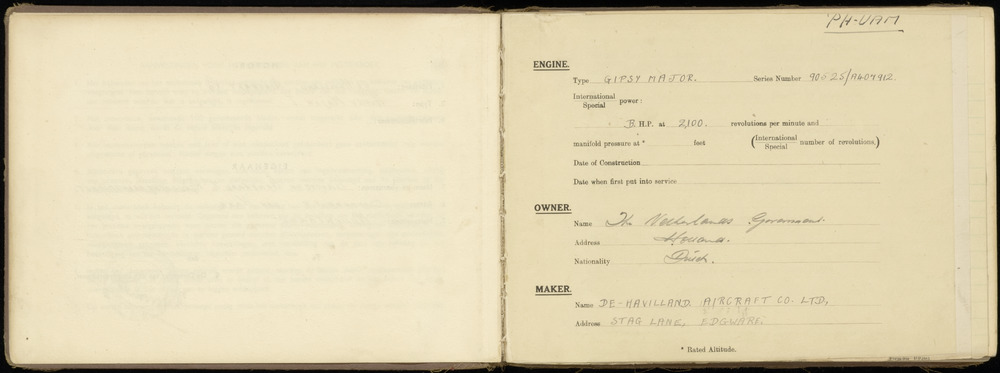 PH-UAM
ENGINE.
Type GIPSY MAJOR. Series Number 90525/A407912
International
Special power:
B.H.P. at 2,100. revolutions per minute and
manifold pressure at * feet (International
Special number of revolutions.)
Date of Construction
Date when first put into service
OWNER.
Name The Netherlands Government.
Address Holland.
Nationality Dutch.
MAKER.
Name DE-HAVILLAND AIRCRAFT CO. LTD,
Address STAG LANE, EDGWARE.
* Rated Altitude.